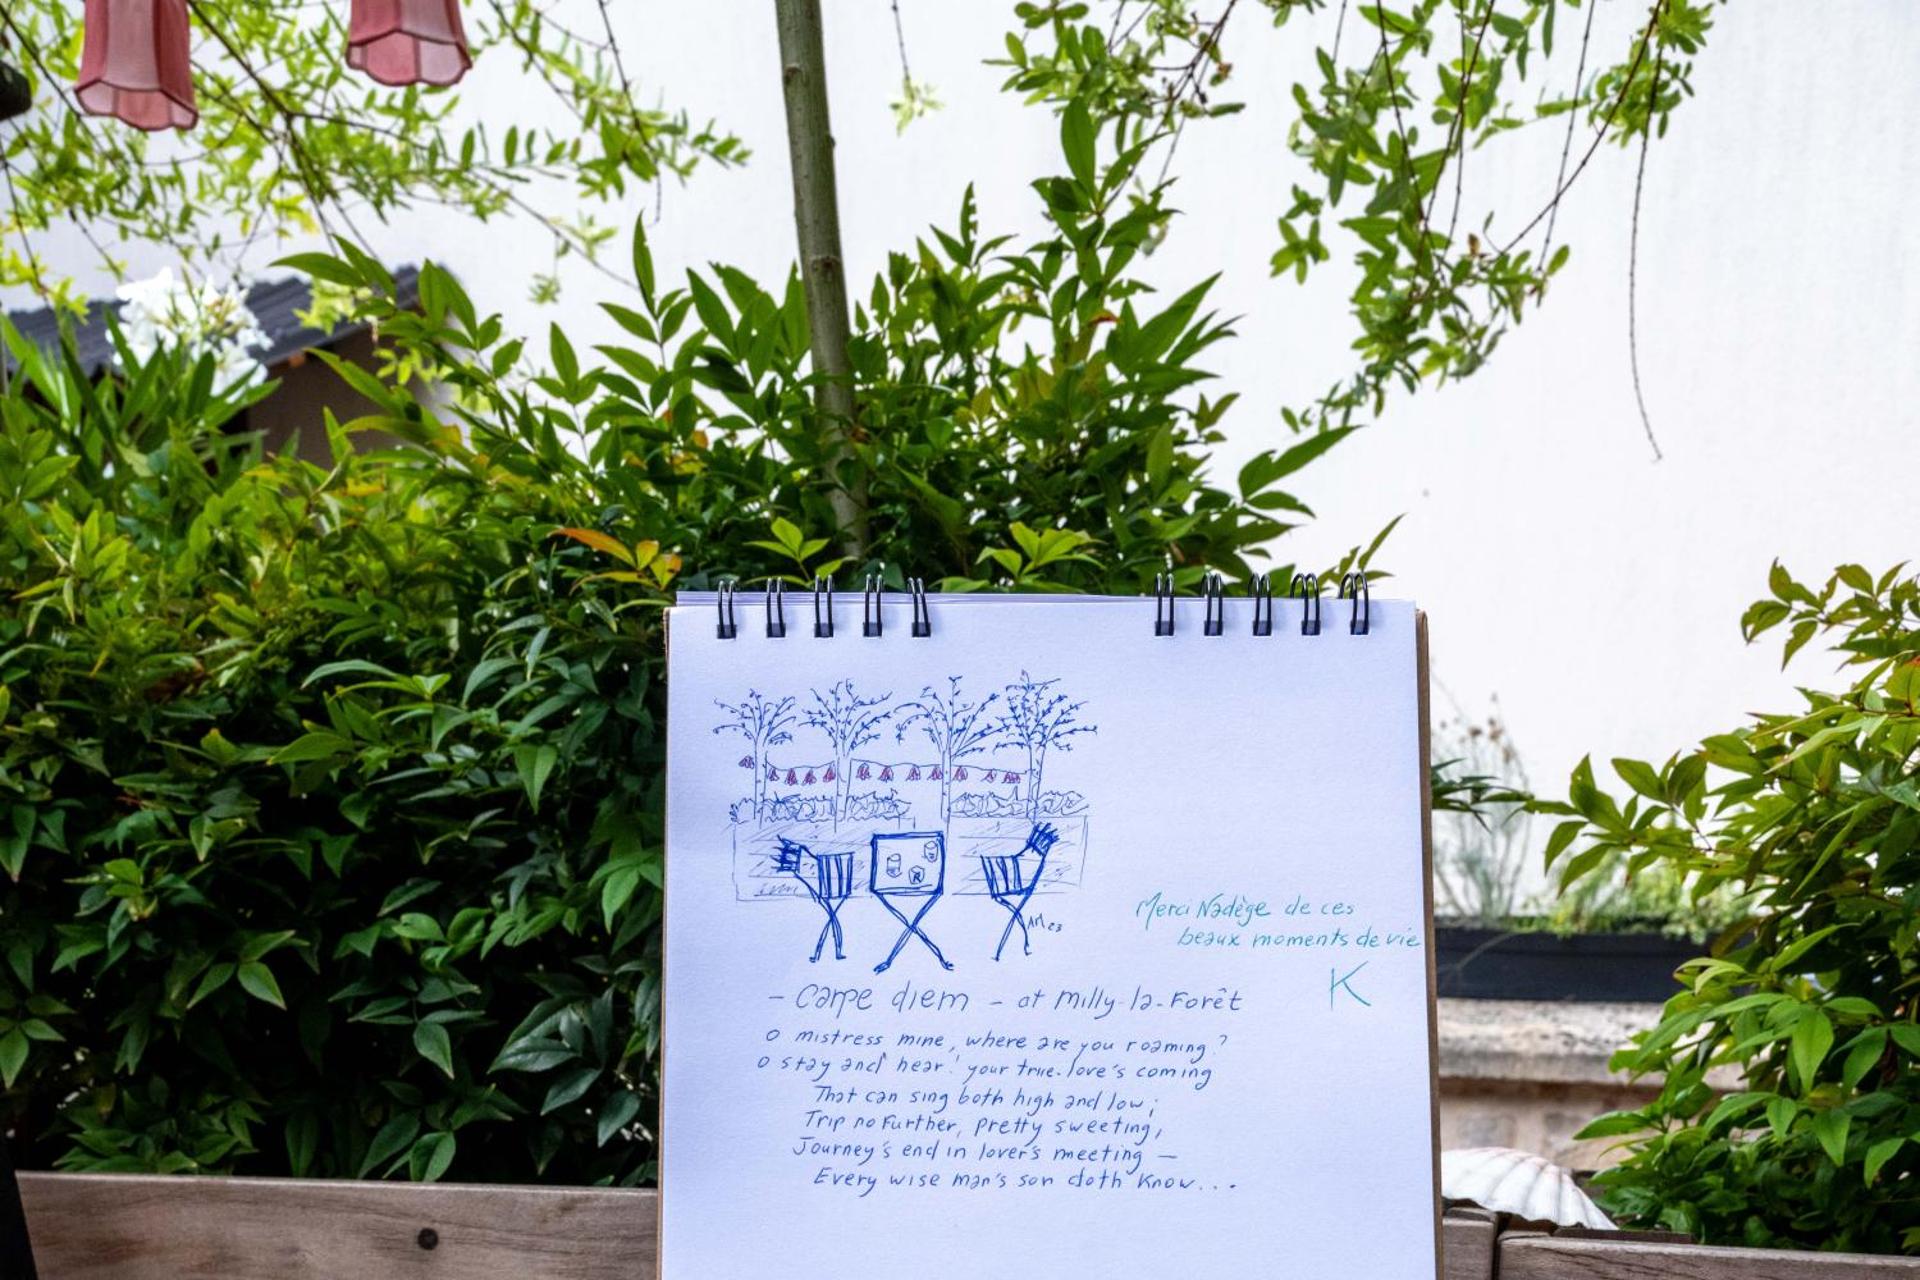 AM 23
Merci Nadège de ces
beaux moments de vie
K
- Carpe diem - at Milly-la-Forêt
O mistress mine, where are you roaming?
O stay and hear! your true-love's coming
That can sing both high and low;
Trip no further, pretty sweeting,
Journey's end in lover's meeting —
Every wise man's son doth know...